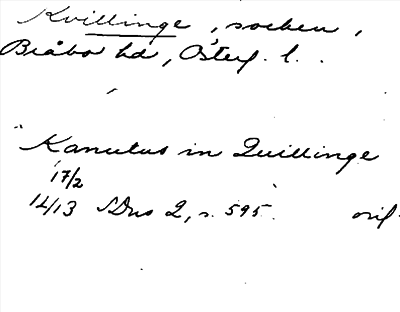 Kvillinge, socken,
Bråbo hd, Östergl. l.
Kanutus in Quillinge
17/2
1413 SDns 2, s. 595. orig.